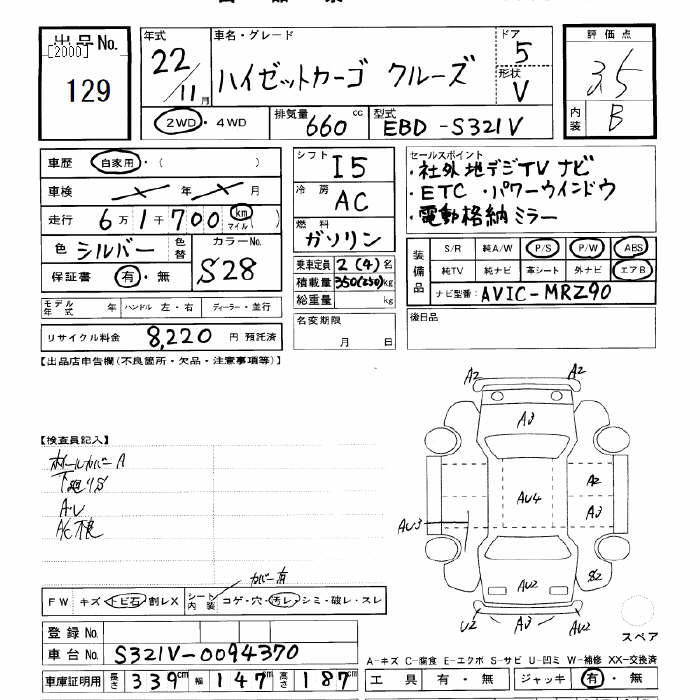 出品No.
[2000]
129
年式
22/11月
車名・グレード
ハイゼットカーゴ クルーズ
ドア
5
形状
V
評価点
3.5
内装
B
2WD・4WD
排気量
660 cc
型式
EBD-S321V
車歴 自家用・( )
車検 年 月
走行 6万1千700 km マイル( )
色 シルバー 色替
カラーNo.
S28
保証書 有・無
シフト I5
冷房 AC
燃料 ガソリン
乗車定員 2(4)名
積載量 350(250)kg
総重量 kg
セールスポイント
・社外地デジTVナビ
・ETC ・パワーウインドウ
・電動格納ミラー
装備品
S/R 純A/W P/S P/W ABS
純TV 純ナビ 革シート 外ナビ エアB
ナビ型番: AVIC-MRZ90
モデル年式 年 ハンドル 左・右 ディーラー・並行
リサイクル料金 8,220 円 預託済
名変期限
月 日
後日品
【出品店申告欄(不良箇所・欠品・注意事項等)】
【検査員記入】
ホールカバーA
下廻りS
AC
カバー有
FW キズ トビ石 割レX シート内装 コゲ・穴・汚レ・シミ・破レ・スレ
A2 A2
A3
A2
AU4
A3
AU3
S2
AU2
U2 A3 AU2
スペア
登録No.
車台No. S321V-0094370
車庫証明用 長さ 339cm 幅 147cm 高さ 187cm
A-キズ C-腐食 E-エクボ S-サビ U-凹ミ W-補修 XX-交換済
工具 有・無 ジャッキ 有・無